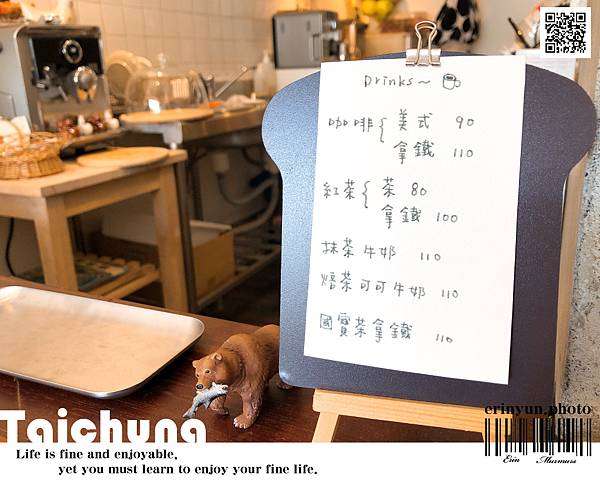 Drinks~
咖啡{美式 90
拿鐵 110
紅茶{茶 80
拿鐵 100
抹茶牛奶 110
焙茶可可牛奶 110
國寶茶拿鐵 110
erinyun.photo
Erin Murmurs
Taichung
Life is fine and enjoyable,
yet you must learn to enjoy your fine life.